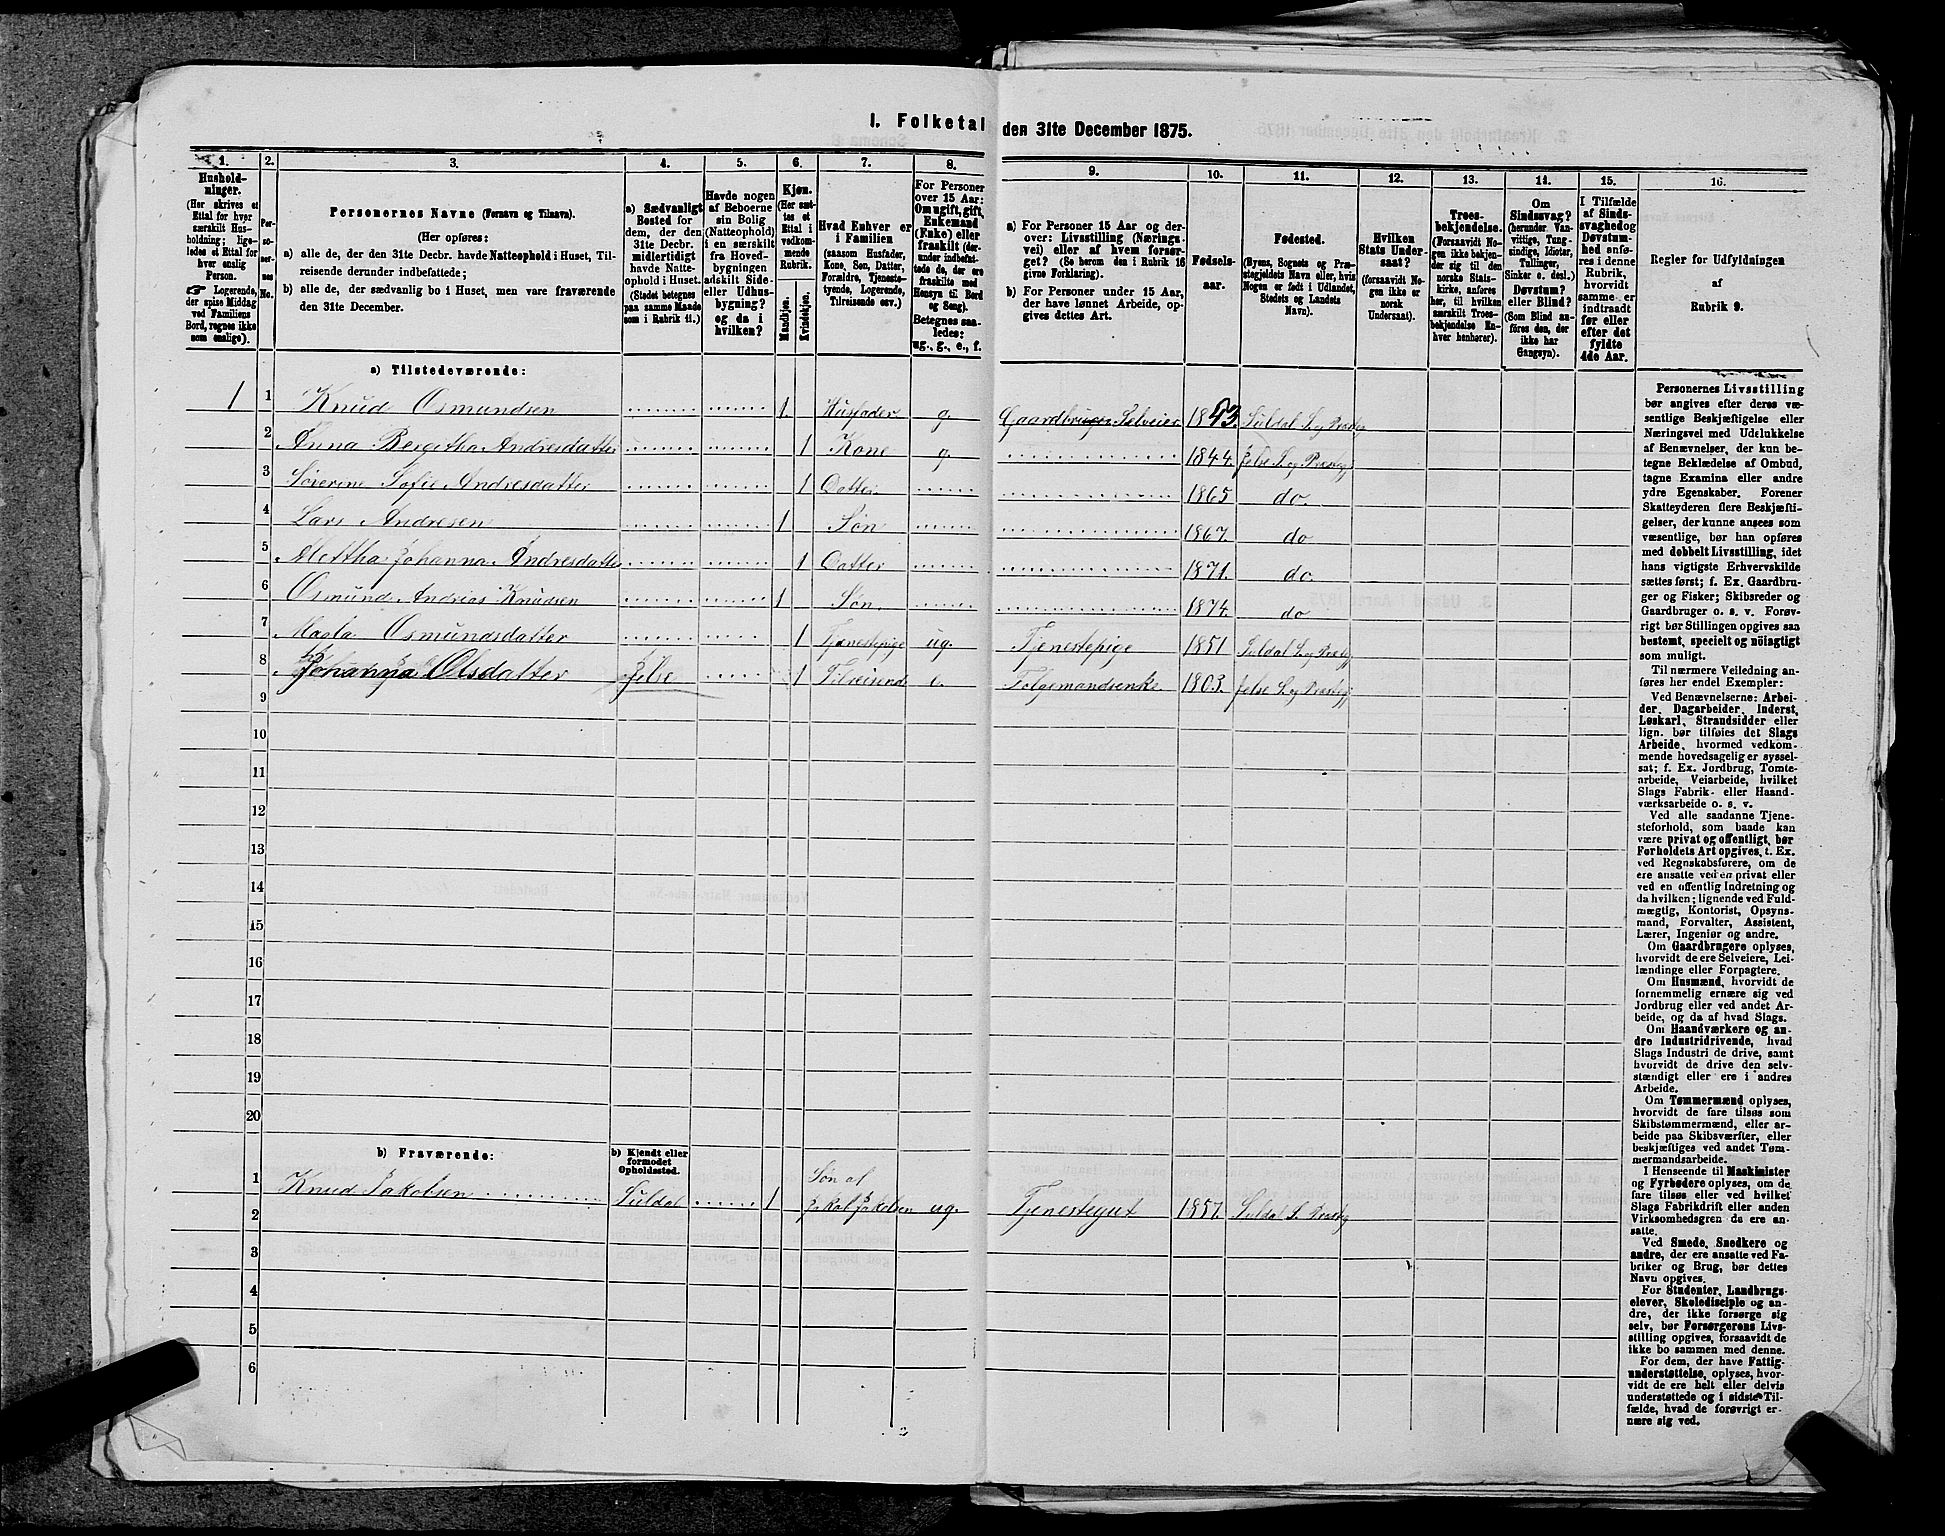 I. Folketal den 31te December 1875.
1. 2. 3. 4. 5. 6. 7. 8. 9. 10. 11. 12. 13. 14. 15. 16.
Husholdninger.
(Her skrives et
Ettal for hver
særskilt Husholdning;
ligeledes et Ettal for
hver enslig
Person.
☞ Logerende,
der spise Middag
ved Familiens
Bord, regnes ikke
som enslige).
Personernes No.
Personernes Navne (Fornavn og Tilnavn).
(Her opføres:
a) alle de, der den 31te Decbr. havde Natteophold i Huset, Tilreisende derunder indbefattede;
b) alle de, der sædvanlig bo i Huset, men vare fraværende
den 31te December.
a) Sædvanligt
Bosted for
dem, der den
31te Decbr.
midlertidigt
havde Natteophold
i Huset.
(Stedet betegnes
paa samme Maade
som i Rubrik 11.)
Havde nogen
af Beboerne
sin Bolig
(Natteophold)
i en særskilt
fra Hovedbygningen
adskilt Side-
eller Udhusbygning?
og da i
hvilken?
Kjøn.
(Her sættes et
Ettal i
vedkommende
Rubrik.
Mandkjøn.
Kvindekjøn.
Hvad Enhver er
i Familien
(saasom Husfader,
Kone, Søn, Datter,
Forældre, Tjenestetyende,
Logerende,
Tilreisende osv.)
For Personer
over 15 Aar:
Om ugift, gift,
Enkemand
(Enke) eller
fraskilt (derunder
indbefattede
de, der ere
fraskilte med
Hensyn til Bord
og Seng).
Betegnes saaledes:
ug., g., e., f.
a) For Personer 15 Aar og derover:
Livsstilling (Næringsvei)
eller af hvem forsørget?
(Se herom den i Rubrik 16
givne Forklaring).
b) For Personer under 15 Aar,
der have lønnet Arbeide, opgives
dettes Art.
Fødselsaar.
Fødested.
(Byens, Sognets og Præstegjeldets
Navn eller, hvis
Nogen er født i Udlandet,
Stedets og Landets
Navn).
Hvilken
Stats Undersaat?
(forsaavidt Nogen
ikke er
norsk
Undersaat).
Troesbekjendelse.
(Forsaavidt Nogen
ikke bekjender
sig til den
norske Statskirke,
anføres
her, til hvilken
særskilt Troesbekjendelse
Enhver
henhører).
Om
Sindssvag?
(herunder Vanvittige,
Tungsindige,
Idioter,
Tullinger,
Sinker o. desl.)
Døvstum?
eller Blind?
(Som Blind anføres
den, der
ikke har
Gangsyn).
I Tilfælde
af Sindssvaghed
og
Døvstumhed
anføres
i denne
Rubrik,
hvorvidt
samme er
indtraadt
før eller
efter det
fyldte
4de Aar.
Regler for Udfyldningen
af
Rubrik 9.
a) Tilstedeværende:
1 1 Knud Osmundsen 1. Husfader g. Gaardbruger Selveier 1843. Suldal S. og Præstg
2 Anna Bergitha Andresdatter 1 Kone g. 1844. Jelse S. og Præstgj
3 Sørerine Sofie Andresdatter 1 Datter 1865 do.
4 Lars Andresen 1 Søn 1867. do
5 Mettha Johanna Andresdatter 1 Datter 1871. do.
6 Osmund Andrias Knudsen 1 Søn. 1874. do
7 Osmundsdatter 1 Tjenestepige ug. Tjenestepige 1851 Suldal S. og Præstgj
8 Johanna Olsdatter Jelse 1 Tilreisend e. Folgemandsenke 1803. Jelse S. og Præstegj
9
10
11
12
13
14
15
16
17
18
19
20
b) Fraværende:
b) Kjendt eller
formodet
Opholdssted.
1 Knud Jakobsen Suldal 1 Søn af Jakob Jakobsen ug. Tjenestegut 1857. Suldal S. Præstg
2
3
4
5
6
Personernes Livsstilling
bør angives efter deres væsentlige
Beskjæftigelse eller
Næringsvei med Udelukkelse
af Benævnelser, der kun betegne
Beklædelse af Ombud,
tagne Examina eller andre
ydre Egenskaber. Forener
Skatteyderen flere Beskjæftigelser,
der kunne ansees som
væsentlige, bør han opføres
med dobbelt Livsstilling, idet
hans vigtigste Erhvervskilde
sættes først; f. Ex. Gaardbruger
og Fisker; Skibsreder og
Gaardbruger o. s. v. Forøvrigt
bør Stillingen opgives saa
bestemt, specielt og nøiagtigt
som muligt.
Til nærmere Veiledning anføres
her endel Exempler:
Ved Benævnelserne: Arbeider,
Dagarbeider, Inderst,
Løskarl, Strandsidder eller
lign. bør tilføies det Slags
Arbeide, hvormed vedkommende
hovedsagelig er sysselsat;
f. Ex. Jordbrug, Tomtearbeide,
Veiarbeide, hvilket
Slags Fabrik- eller Haandværksarbeide
o. s. v.
Ved alle saadanne Tjenesteforhold,
som baade kan
være privat og offentligt, bør
Forholdets Art opgives, t. Ex.
ved Regnskabsførere, om de
ere ansatte ved en privat eller
ved en offentlig Indretning og
da hvilken; lignende ved Fuldmægtig,
Kontorist, Opsynsmand,
Forvalter, Assistent,
Lærer, Ingeniør og andre.
Om Gaardbrugere oplyses,
hvorvidt de ere Selveiere, Leilændinge
eller Forpagtere.
Om Husmænd, hvorvidt de
fornemmelig ernære sig ved
Jordbrug eller ved andet Arbeide,
og da af hvad Slags.
Om Haandværkere og andre
Industridrivende, hvad
Slags Industri de drive, samt
hvorvidt de drive den selvstændigt
eller ere i andres
Arbeide.
Om Tømmermænd oplyses,
hvorvidt de fare tilsøs som
Skibstømmermænd, eller arbeide
paa Skibsværfter, eller
beskjæftiges ved andet Tømmermandsarbeide.
I Henseende til Maskinister
og Fyrbødere oplyses, om de
fare tilsøs eller ved hvilket
Slags Fabrikdrift eller anden
Virksomhedsgren de ere ansatte.
Ved Smede, Snedkere og
andre, der ere ansatte ved Fabriker
og Brug, bør dettes
Navn opgives.
For Studenter, Landbrugselever,
Skoledisciple og andre,
der ikke forsørge sig
selv, bør Forsørgerens Livsstilling
opgives, forsaavidt de
ikke bo sammen med denne.
For dem, der have Fattigunderstøttelse,
oplyses, hvorvidt
de ere helt eller delvis
understøttede og i sidste Tilfælde,
hvad de forøvrigt ernære
sig ved.